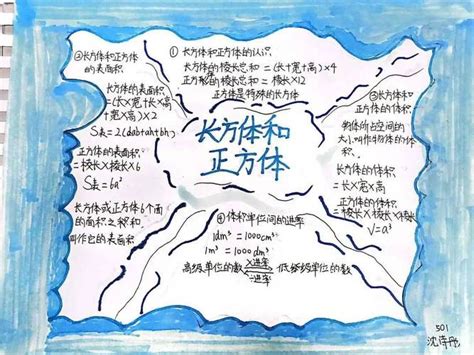 长方体和
正方体
①长方体和正方体的认识
长方体的棱长总和=(长+宽+高)×4
正方体的棱长总和=棱长×12
正方体是特殊的长方体
②长方体和正方体
的表面积
长方体的表面积
=(长×宽+长×高
+宽×高)×2
S表=2(ab+ah+bh)
正方体的表面积
=棱长×棱长×6
S表=6a²
长方体或正方体6个面
的面积之和
叫作它的表面积
③长方体和
正方体的体积
物体所占空间的
大小叫作物体的体
积。
长方体的体积=
长×宽×高
正方体的体积
=棱长×棱长×棱长
V=a³
④体积单位间的进率
1dm³=1000cm³
1m³=1000dm³
高级单位的数
×进率
÷进率
低级单位的数
501